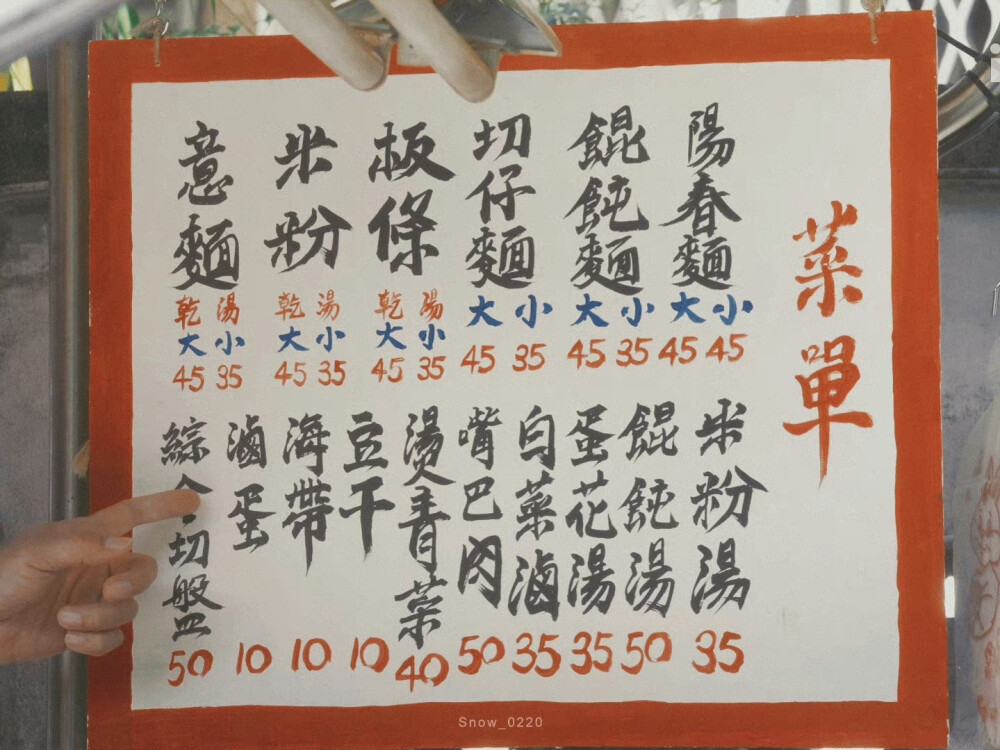 菜單
陽春麵 大 小 45 45
餛飩麵 大 小 45 35
切仔麵 大 小 45 35
板條 乾 湯 大 小 45 35
米粉 乾 湯 大 小 45 35
意麵 乾 湯 大 小 45 35
米粉湯 35
餛飩湯 50
蛋花湯 35
白菜滷 35
嘴巴肉 50
燙青菜 40
豆干 10
海帶 10
滷蛋 10
綜合切盤 50
Snow_0220